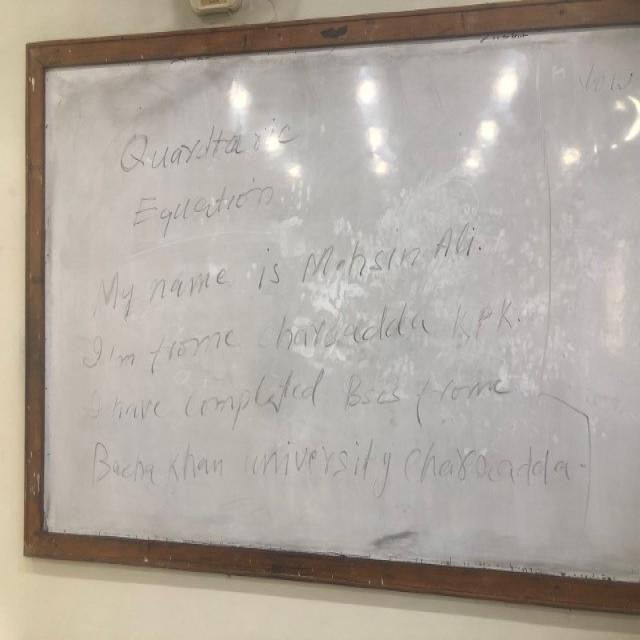 Quardtaric
Equation
My name is Mohsin Ali.
I'm frome charsadda K.P.K.
I have completed Bscs frome
Bacha Khan university Charsadda.